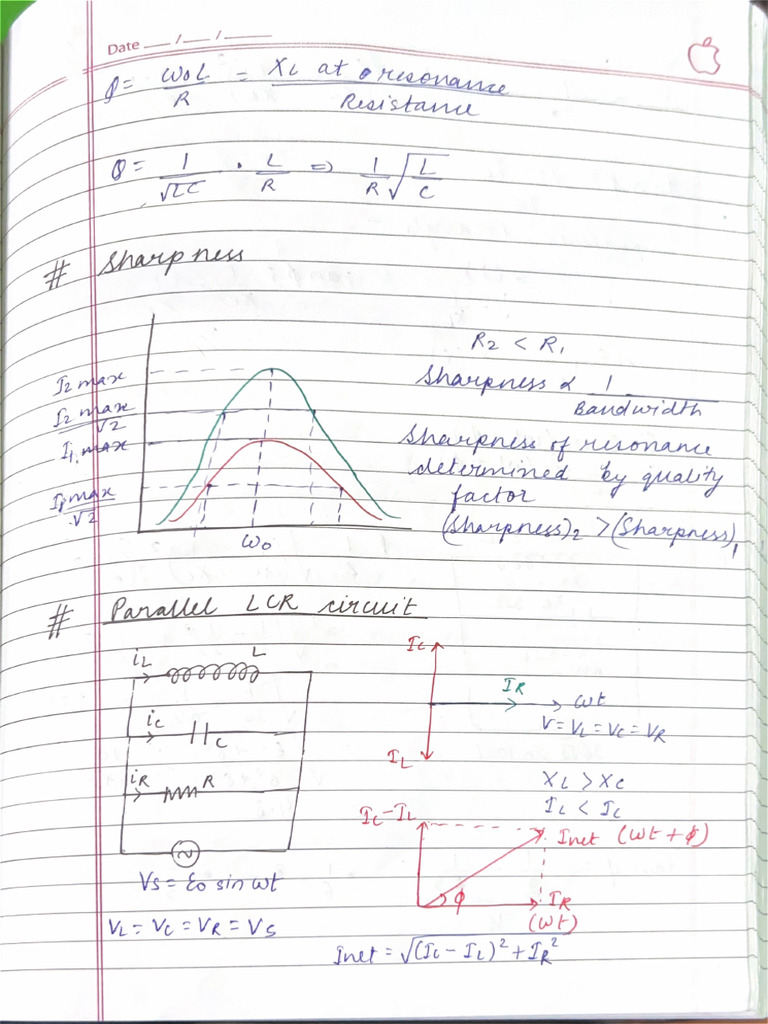 Date __/__/__
Q = ω₀L/R = XL at resonance / Resistance
Q = 1/√LC · L/R ⇒ 1/R √(L/C)
# Sharpness
R₂ < R₁
I₂ max
Sharpness ∝ 1/Bandwidth
I₂ max/√2
I₁, max
Sharpness of resonance
determined by quality
factor
I₁ max/√2
(Sharpness)₂ > (Sharpness)₁
ω₀
# Parallel LCR circuit
iL L
iC C
iR R
Vs = ε₀ sin ωt
VL = VC = VR = Vs
IC
IR
ωt
V = VL = VC = VR
IL
XL > XC
IL < IC
IC - IL
Inet (ωt + ϕ)
ϕ
IR
(ωt)
Inet = √((IC - IL)² + IR²)